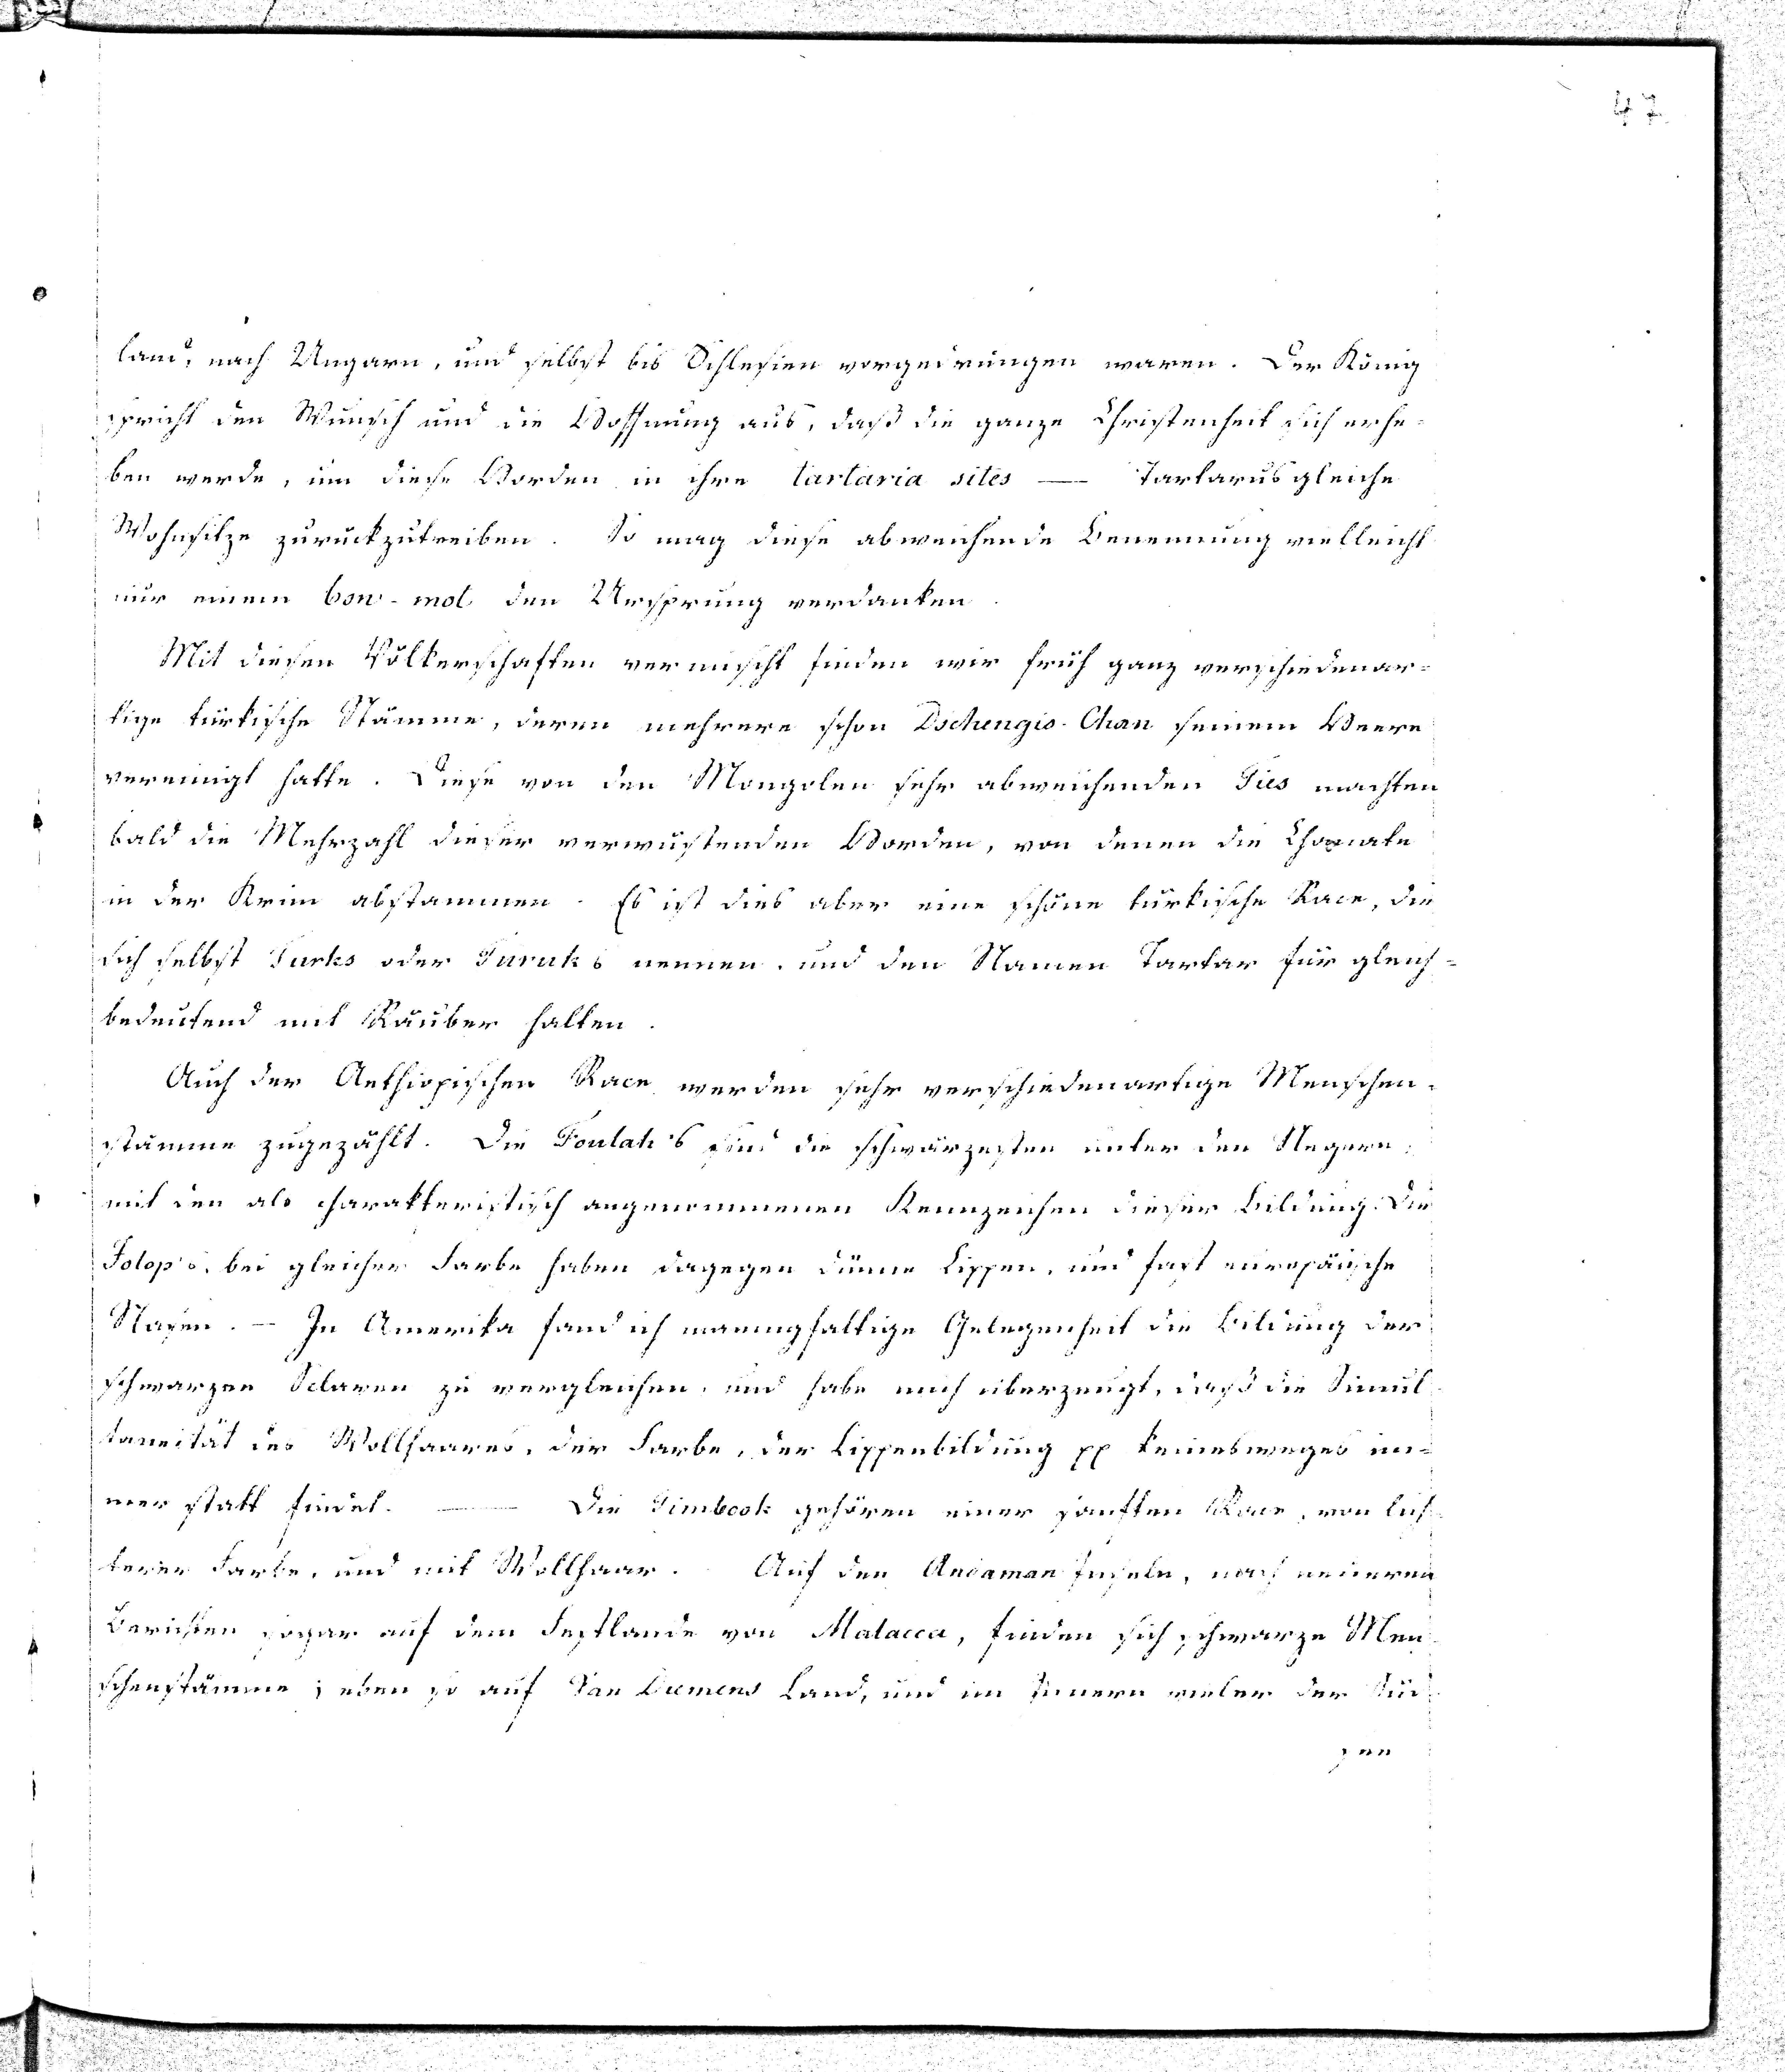 47
land, nach Ungarn, und selbst bis Schlesien vorgedrungen waren. Der König
spricht den Wunsch und die Hoffnung aus, daß die ganze Christenheit sich erhe-
ben werde, um diese Horden in ihre tartaria sites — Tartarusgleiche
Wohnsitze zurückzutreiben. So mag diese abweichende Benennung vielleicht
nur einem bon-mot den Ursprung verdanken.
Mit diesen Völkerschaften vermischt finden wir früh ganz verschiedenar-
tige türkische Stämme, deren mehrere schon Dschengis-Chan seinem Heere
vereinigt hatte. Diese von den Mongolen sehr abweichenden machten
bald die Mehrzahl dieser verwüstenden Horden, von denen die
in der Krim abstammen. Es ist dies aber eine schöne türkische Race, die
sich selbst Turks oder Turuks nennen, und den Namen Tartar für gleich-
bedeutend mit Räuber halten.
Auch der Aethiopischen Race werden sehr verschiedenartige Menschen-
stämme zugezählt. Die Foulah's sind die schwärzesten unter den Negern,
mit den als charakteristisch angenommenen Kennzeichen dieser Bildung. Die
Jolop's, bei gleicher Farbe haben dagegen dünne Lippen, und fast europäische
Nasen. — In Amerika fand ich mannigfaltige Gelegenheit die Bildung der
schwarzen Sclaven zu vergleichen, und habe mich überzeugt, daß die Simul-
taneität des Wollhaares, der Farbe, der Lippenbildung pp keinesweges im-
mer statt findet. — Die gehören einer sanften Race, von lich-
terer Farbe, und mit Wollhaar. Auf den Andaman Inseln, nach neueren
Berichten sogar auf dem Festlande von Malacca, finden sich schwarze Men-
schenstämme; eben so auf Van Diemens Land, und im Innern vieler der Süd-